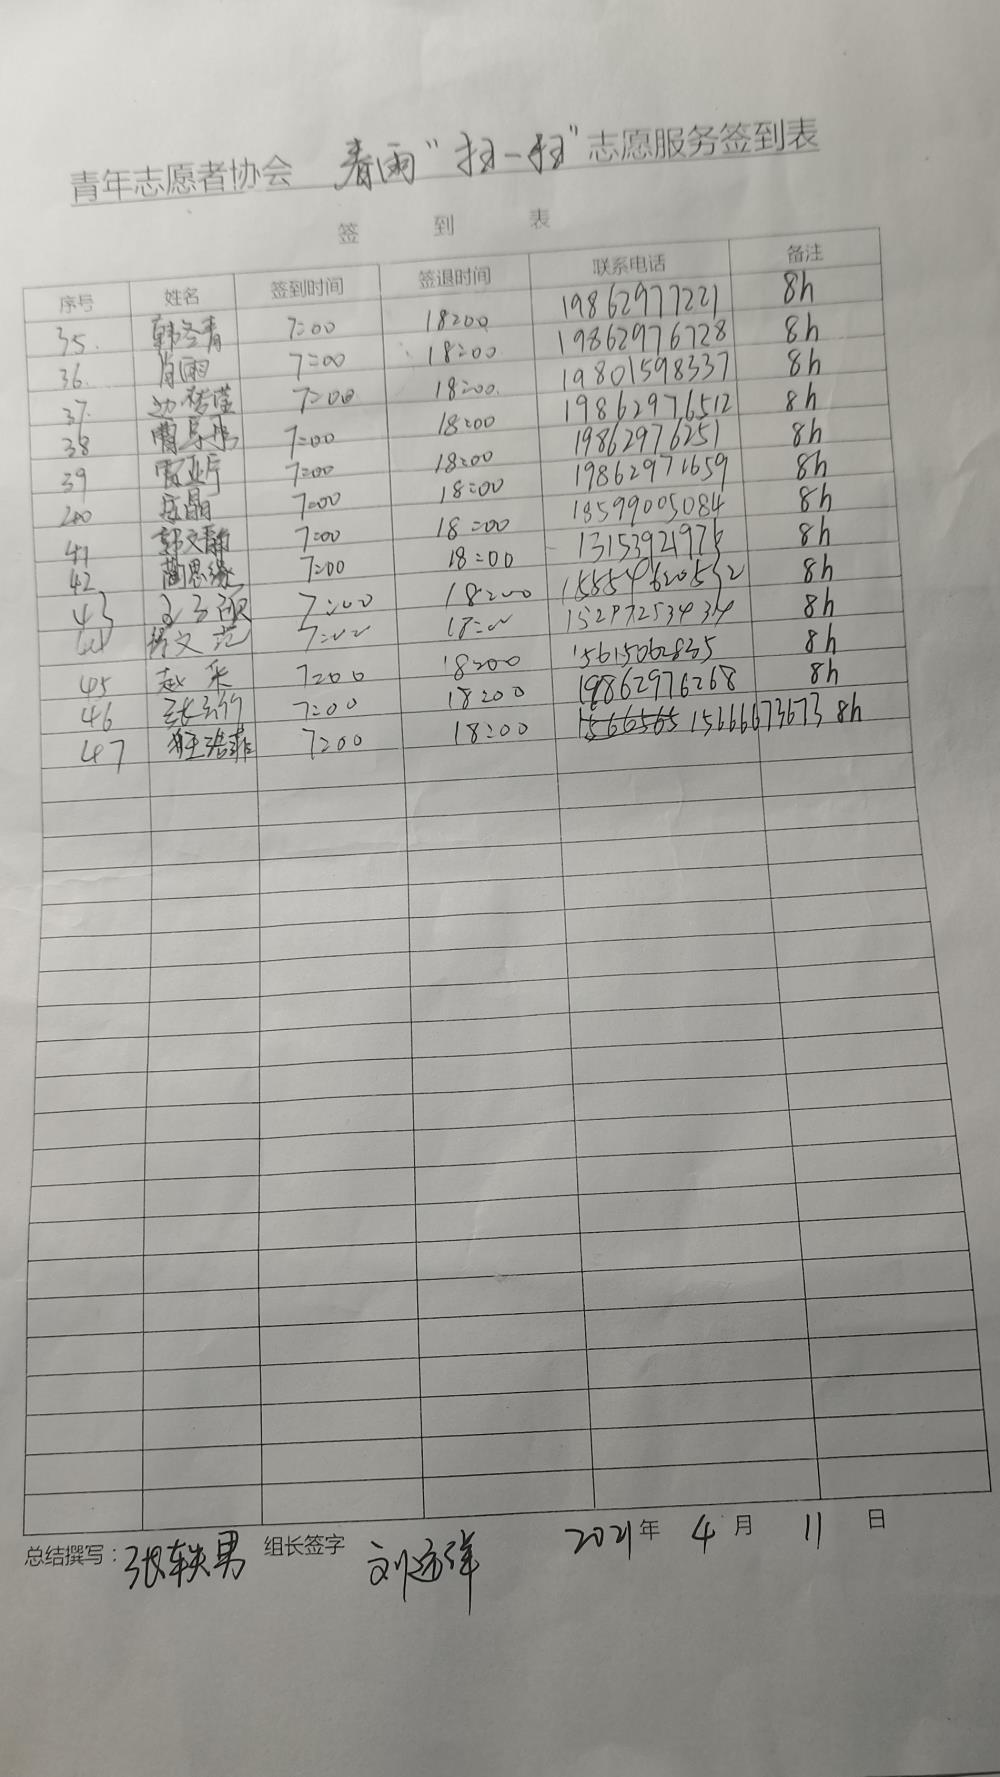 青年志愿者协会 春雨“扫一扫”志愿服务签到表
签 到 表
序号 姓名 签到时间 签退时间 联系电话 备注
35. 韩冬青 7:00 18:00 19862977221 8h
36. 肖雨 7:00 18:00 19862976728 8h
37. 边 7:00 18:00. 19801598337 8h
38 曹 7:00 18:00 19862976512 8h
39 7:00 18:00 19862976251 8h
40 晶 7:00 18:00 19862971659 8h
41 韩文静 7:00 18:00 18599005084 8h
42 蔺思缘 7:00 18:00 13153921975 8h
43 7:00 18:00 15554620532 8h
44 文 7:00 18:00 15297253434 8h
45 赵 采 7:00 18:00 15615062835 8h
46 张 7:00 18:00 19862976268 8h
47 7:00 18:00 1566565 15666673673 8h
总结撰写：张轶男 组长签字 刘远洋 2021年 4月 11日